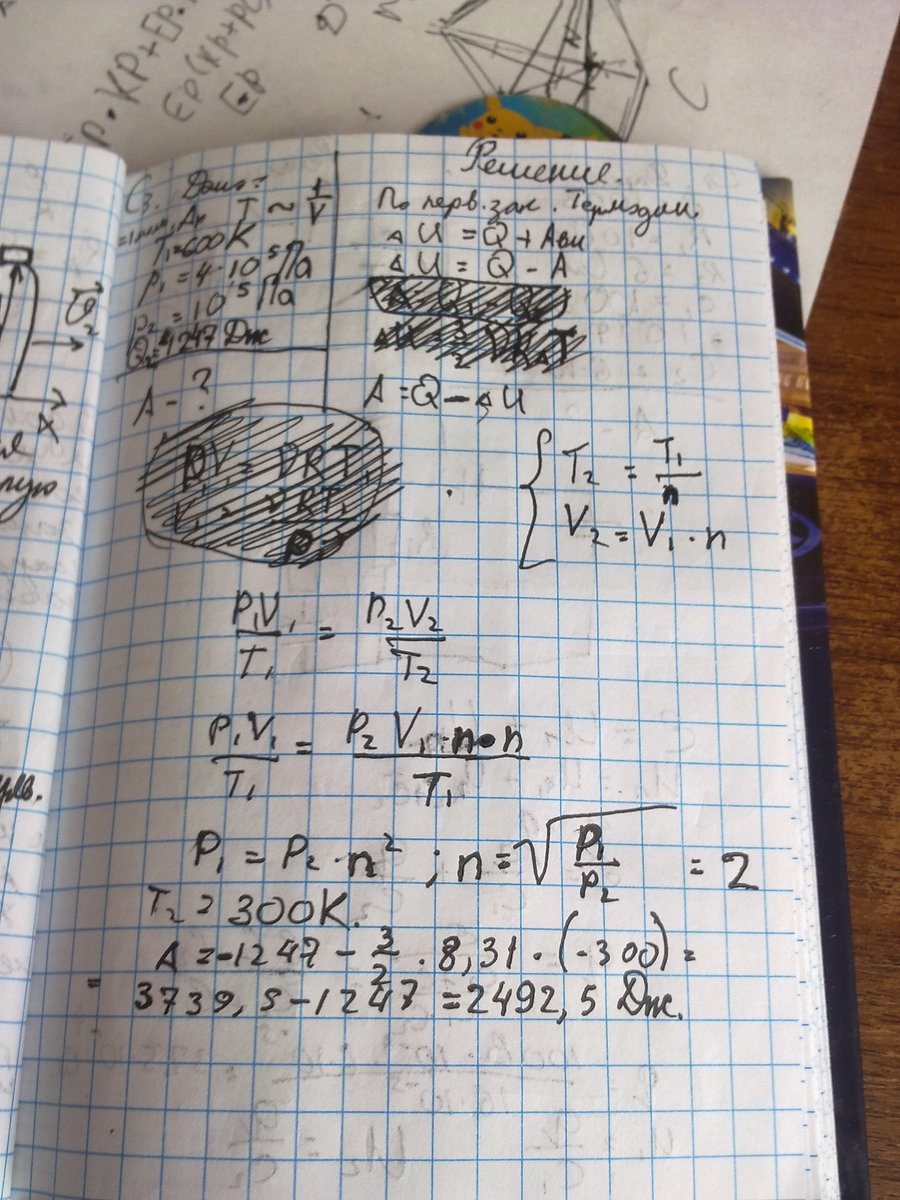 Ep·KP+Ep·
Ep(KP+PC
Ep
C
C3. Дано:
T ~ 1/V
T₁=600K
p₁ = 4·10⁵Па
p₂ = 10⁵ Па
Q₂=1247 Дж
A - ?
X
Решение.
По перв. зак. Термодин.
ΔU = Q + Aвн
ΔU = Q - A
A = Q - ΔU
PV₁ = νRT₁
{ T₂ = T₁/n
V₂ = V₁·n
P₁V₁/T₁ = P₂V₂/T₂
P₁V₁/T₁ = P₂V₁·n·n/T₁
P₁ = P₂·n² ; n = √(P₁/P₂) = 2
T₂ = 300K.
A = -1247 - 3/2 · 8,31 · (-300) =
= 3739,5 - 1247 = 2492,5 Дж.